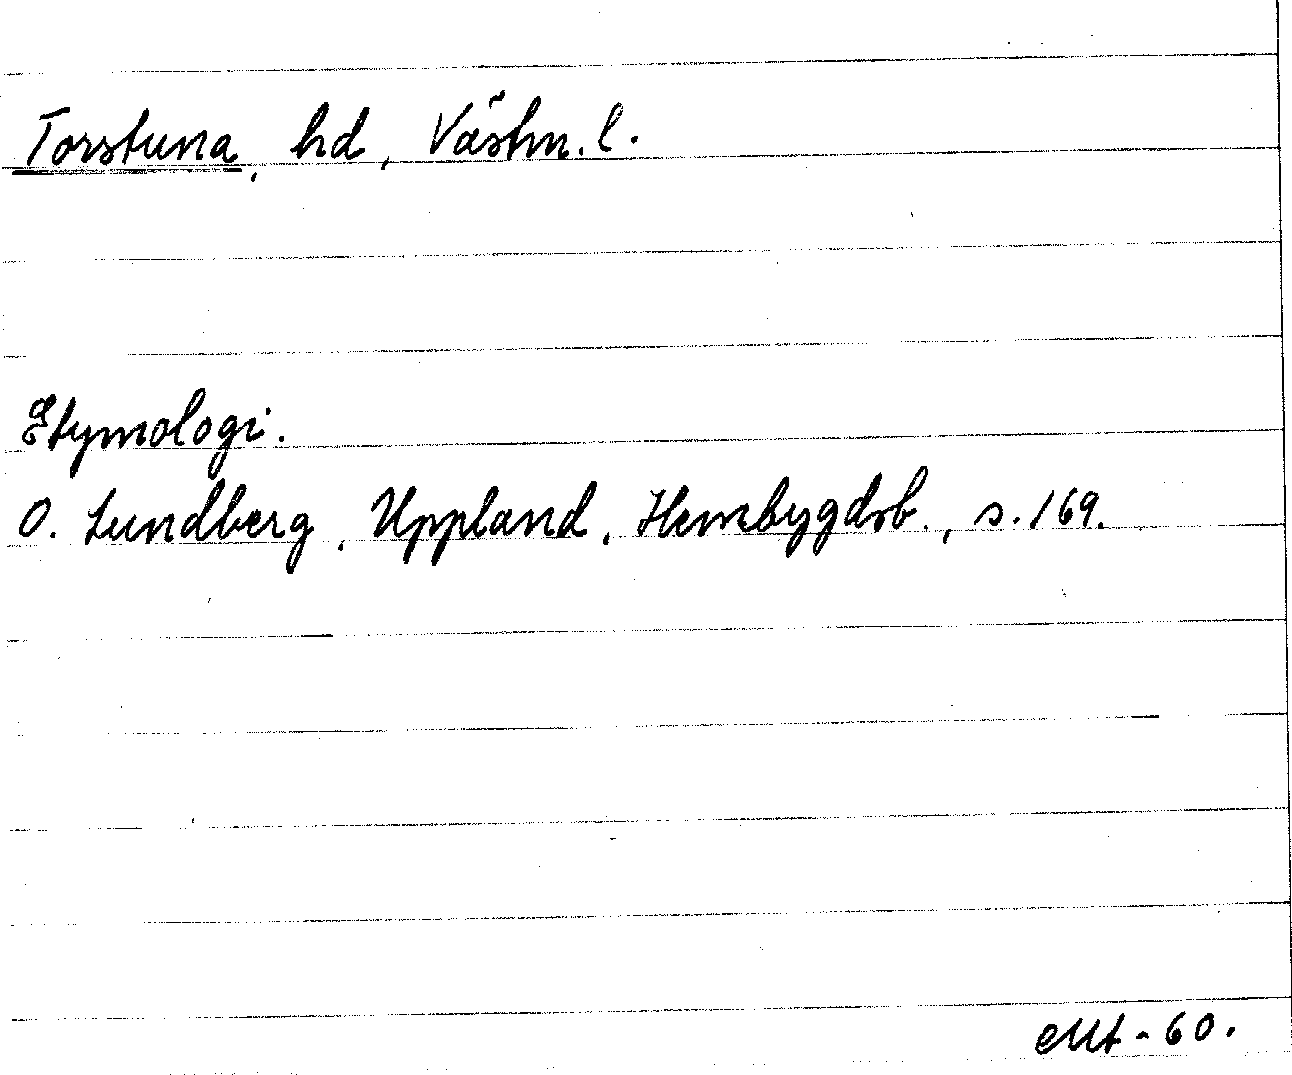 Torstuna, hd, Västm. l.
Etymologi.
O. Lundberg, Uppland, Hembygdsb., s. 169.
60.